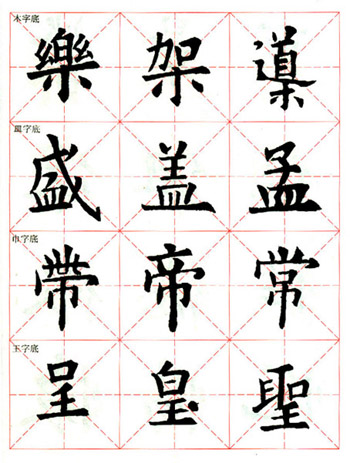 木字底
樂架
皿字底
盛盖孟
巾字底
帶帝常
王字底
呈皇聖